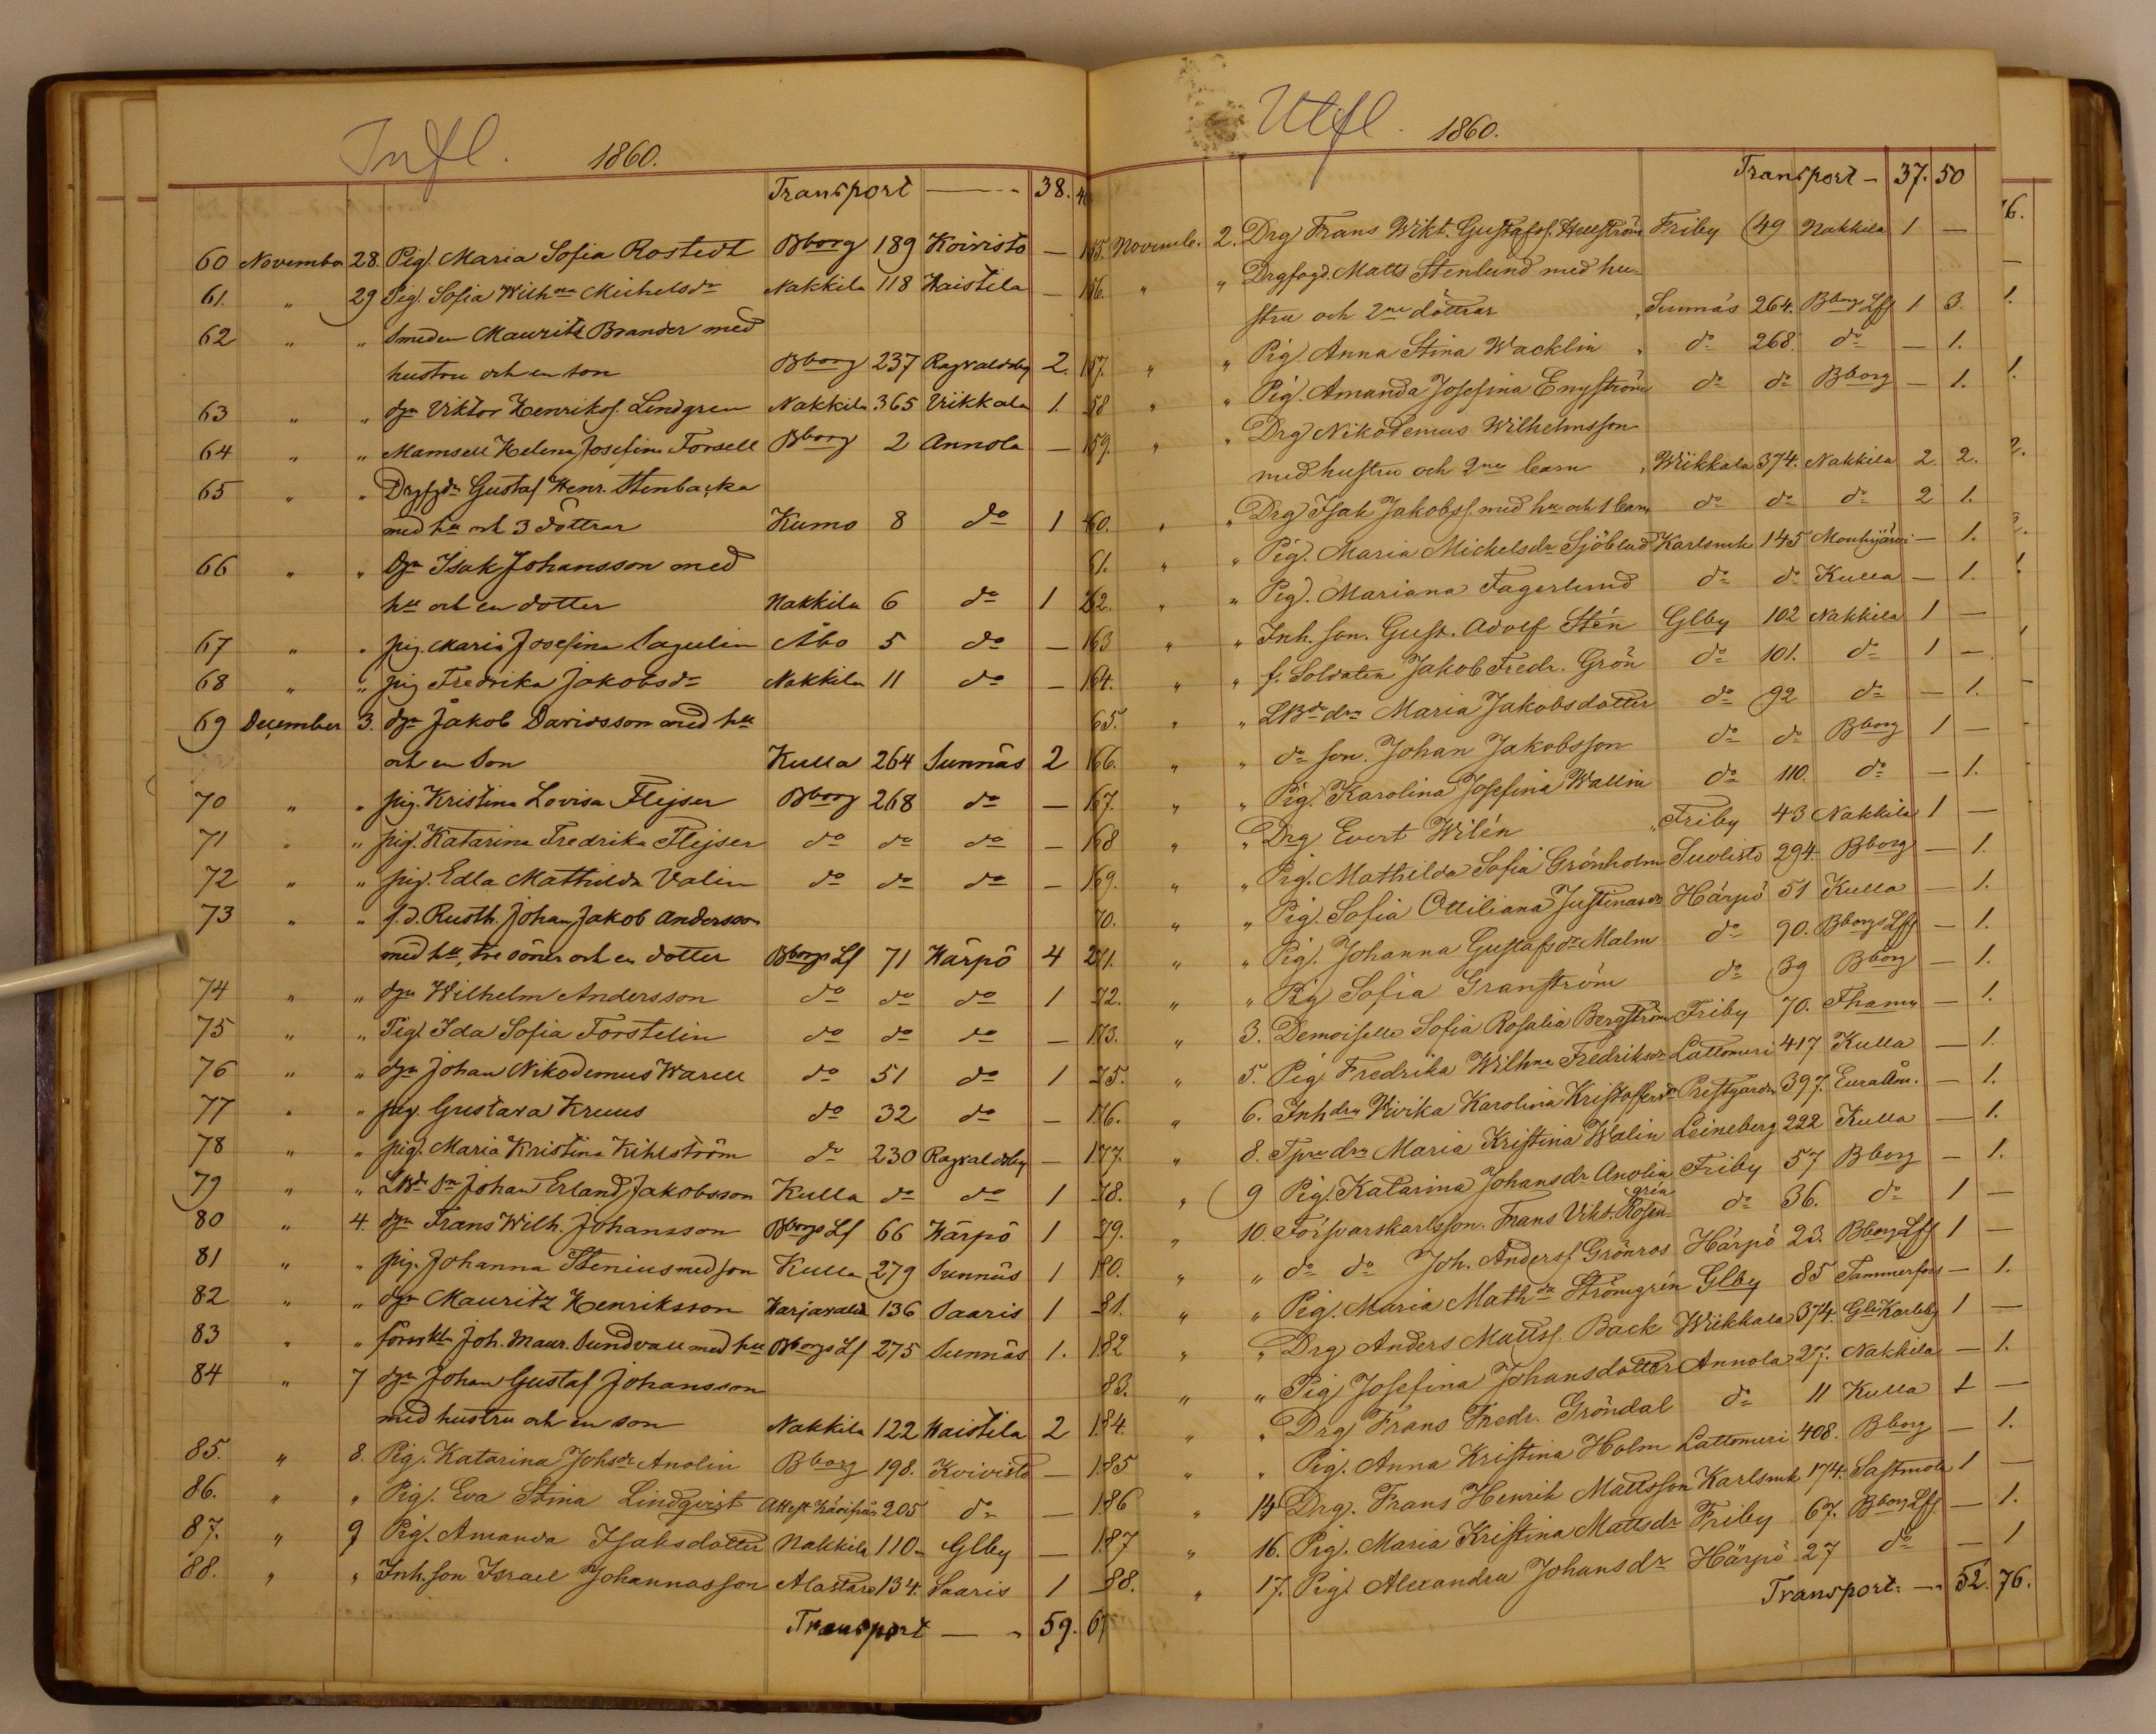 Infl. 1860.
Transport — 38. 4
60 November 28. Pig. Maria Sofia Rostedt Bborg 189 Koivisto —
61. " 29 Pig. Sofia Wilhna Michelsdr Nakkila 118 Haistila —
62 " " Smeden Mauritz Brander med
hustru och en son Bborg 237 Ragvaldsby 2.
63 " " dgn Viktor Henriksf. Lindgren Nakkila 365 Viikkala 1.
64 " " Mamsell Helena Josefina Forsell Bborg 2 Annola —
65 " " Drgfgdn Gustaf Henr. Stenbacka
med hu och 3 döttrar Kumo 8 do 1
66 " " Dgn Isak Johansson med
hu och en dotter Nakkila 6 do 1
67 " " pig. Maria Josefina Sagulin Åbo 5 do —
68 " " pig Fredrika Jakobsdr Nakkila 11 do —
69 December 3. dgn Jakob Davidsson med hu
och en Son Kulla 264 Sunnäs 2
70 " " pig. Kristina Lovisa Flejser Bborg 268 do —
71 " " pig. Katarina Fredrika Flejser do do do —
72 " " pig. Edla Mathilda Valin do do do —
73 " " f.d. Rusth. Johan Jakob Andersson
med hu, tre söner och en dotter Bborgs Lf 71 Härpö 4
74 " " dgn Wilhelm Andersson do do do 1
75 " " Pig. Ida Sofia Forstelin do do do —
76 " " dgn Johan Nikodemus Warell do 51 do 1
77 " " pig. Gustava Kruus do 32 do —
78 " " pig. Maria Kristina Kihlström do 230 Ragvaldsby —
79 " " LBde Sn Johan Erland Jakobsson Kulla do do 1
80 " 4. dgn Frans Wilh. Johansson Bborgs Lf 66 Härpö 1
81 " " pig. Johanna Stenius med son Kulla 279 Sunnäs 1
82 " " dgn Mauritz Henriksson Harjavalta 136 Saaris 1
83 " " Joh. Maur. Sundvall med hu Bborgs Lf 275 Sunnäs 1.
84 " 7 dgn Johan Gustaf Johansson
med hustru och en son Nakkila 122 Haistila 2
85. " 8. Pig. Katarina Johsdr Anolin Bborg 198. Koivisto —
86. " " Pig. Eva Stina Lindqvist Attest 205 do —
87. " 9 Pig. Amanda Isaksdotter Nakkila 110 Glby —
88. " " Inh. son Israel Johannasson Alastaro 134. Saaris 1
Transport — " 59. 6
Utfl. 1860.
Transport — 37. 50
155. Novemb. 2. Drg Frans Wikt. Gustafsf. Hellström Friby 49 Nakkila 1 —
156. " " Drgfogd. Matts Stenlund med hu-
stru och 2ne döttrar Sunnäs 264. Bborgs Lff 1 3.
157. " " Pig. Anna Stina Wacklin do 268. do — 1.
58 " " Pig. Amanda Josefina Engström do do Bborg — 1.
159. " " Drg Nikodemus Wilhelmsson
med hustru och 2ne barn Wiikkala 374. Nakkila 2 2.
60. " " Drg Isak Jakobsf. med hu och 1 barn do do do 2 1.
61. " " Pig. Maria Mickelsdr Sjöblad Karlsmk 145 Mouhijärvi — 1.
62. " " Pig. Mariana Fagerlund do do Kulla — 1.
163 " " Inh. son. Gust. Adolf Stén Glby 102 Nakkila 1 —
164. " " f. Soldaten Jakob Fredr. Grön do 101. do 1 —
65. " " LBde drn Maria Jakobsdotter do 92 do — 1.
166. " " do son. Johan Jakobsson do do Bborg 1 —
167. " " Pig. Karolina Josefina Wallin do 110. do — 1.
168 " " Drg Evert Wilén Friby 43 Nakkila 1 —
169. " " Pig. Mathilda Sofia Grönholm Suolisto 294. Bborg — 1.
70. " " Pig. Sofia Ottiliana Justinasdr Härpö 51 Kulla — 1.
71. " " Pig. Johanna Gustafsdr Malm do 90. Bborgs Lff — 1.
72. " " Pig Sofia Granström do 39 Bborg — 1.
173. " 3. Demoiselle Sofia Rosalia Bergström Friby 70. Fhamn — 1.
75. " 5. Pig. Fredrika Wilhna Fredriksdr Lattomeri 417 Kulla — 1.
176. " 6. Inh drn Vivika Karolina Kristoffersdr Prestgården 397. Eura Åm. — 1.
177. " 8. Tprs drn Maria Kristina Walin Leineberg 222 Kulla — 1.
78. " 9 Pig. Katarina Johansdr Anolin Friby 57 Bborg — 1.
79. " 10. Försvarskarlsson. Frans Vikt. Rosengrén do 36. do 1 —
180. " " do do Joh. Andersf. Grönros Härpö 23. Bborgs Lff 1 —
81. " " Pig. Maria Mathdr Strömgrén Glby 85 Tammerfors — 1.
182 " " Drg Anders Mattsf. Back Wiikkala 374. Gla Karleby 1 —
83. " " Pig Josefina Johansdotter Annola 27. Nakkila — 1.
184. " " Drg Frans Fredr. Gröndal do 11 Kulla 1 —
185 " " Pig. Anna Kristina Holm Lattomeri 408. Bborg — 1.
186 " 14 Drg. Frans Henrik Mattsson Karlsmk 174. Sastmola 1 —
187 " 16. Pig. Maria Kristina Mattsdr Friby 67. Bborgs Lff — 1.
88. " 17. Pig. Alexandra Johansdr Härpö 27 do — 1
Transport. — " 52. 76.